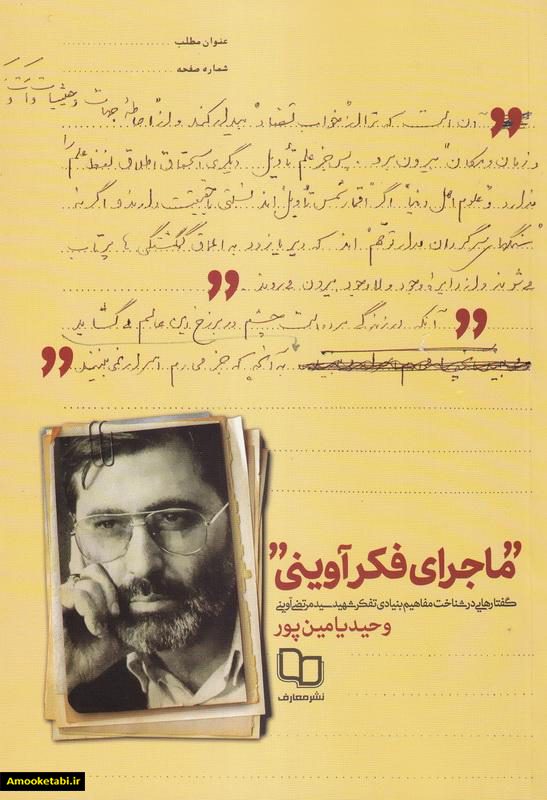 عنوان مطلب
شماره صفحه
آن است که ترا از خواب تضاد بیدار کند و از احاطهٔ جهات و حیثیات و
و زمان و مکان بیرون برد. پس جز علم تأویل دیگری استحقاق اطلاق لفظ علم را
ندارد و علوم اهل دنیا اگر اقمار شمس تأویل‌اند نسبتی با حقیقت دارند و اگر نه
سنگهای سرگردان مدار توهّم‌اند که دیر یا زود به اعماق گمگشتگی‌ها پرتاب
می‌شوند و از دایرهٔ وجود و لاوجود بیرون می‌روند.
آنکه در زندگی مرده است چشم در برزخ این عالم می‌گشاید
به آنچه که جز می‌رم اسرار نمی‌بینند
”ماجرای فکر آوینی”
گفتارهایی در شناخت مفاهیم بنیادی تفکر شهید سید مرتضی آوینی
وحید یامین پور
نشر معارف
Amooketabi.ir